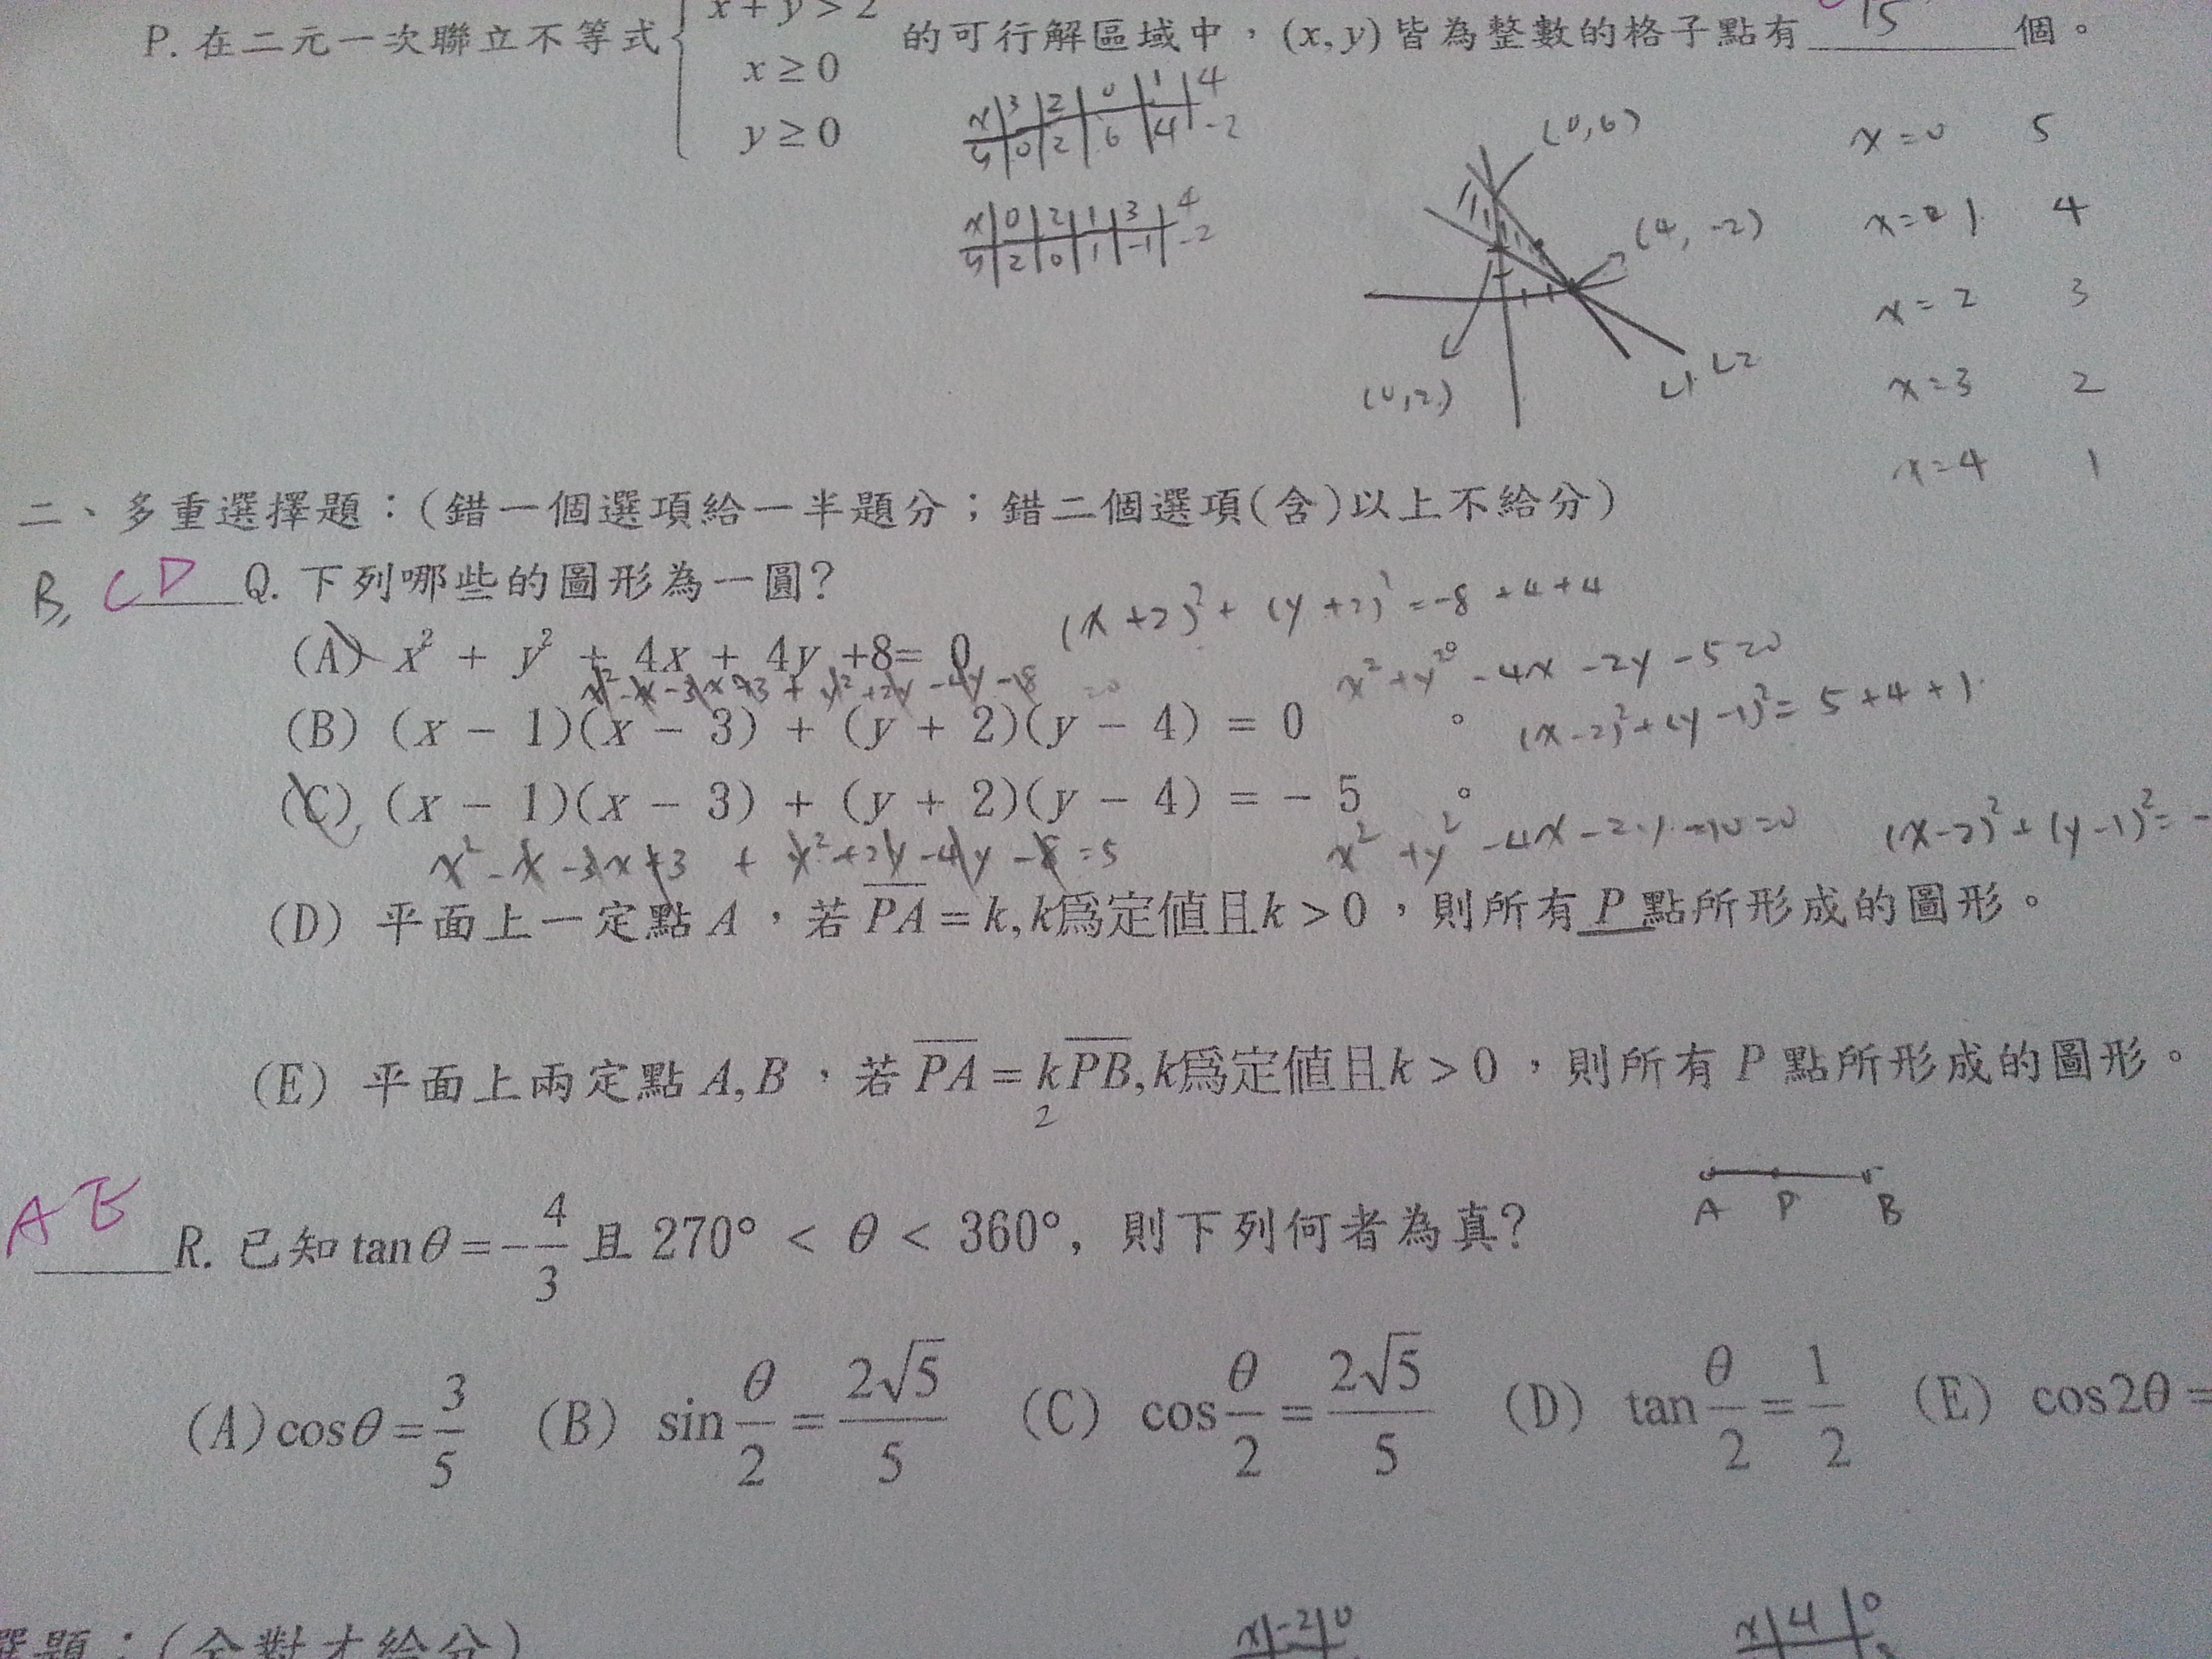 x + y > 2
P. 在二元一次聯立不等式 x ≥ 0 的可行解區域中，(x, y) 皆為整數的格子點有 15 個。
y ≥ 0
x 3 2 0 1 4
y 0 2 6 4 -2
x 0 2 1 3 4
y 2 0 1 -1 -2
(0,6)
(4, -2)
(0,2)
L1 L2
x=0 5
x=1 4
x=2 3
x=3 2
x=4 1
二、多重選擇題：(錯一個選項給一半題分；錯二個選項(含)以上不給分)
B, CD Q. 下列哪些的圖形為一圓?
(x+2)²+(y+2)²=-8+4+4
(A) x² + y² + 4x + 4y +8= 0
x²-x-3x+3+y²+2y-4y-8 =0
x²+y²-4x-2y-5=0
(B) (x − 1)(x − 3) + (y + 2)(y − 4) = 0 。
(x-2)²+(y-1)²=5+4+1
(C) (x − 1)(x − 3) + (y + 2)(y − 4) = − 5 。
x²-x-3x+3 + y²+2y-4y-8=5
x²+y²-4x-2y-10=0 (x-2)²+(y-1)²=-
(D) 平面上一定點 A ，若 PA = k, k為定值且k > 0 ，則所有 P 點所形成的圖形。
(E) 平面上兩定點 A, B ，若 PA = k PB, k為定值且k > 0 ，則所有 P 點所形成的圖形。
2
A P B
AE R. 已知 tanθ = −4/3 且 270° < θ < 360°, 則下列何者為真?
(A) cosθ = 3/5 (B) sin θ/2 = 2√5/5 (C) cos θ/2 = 2√5/5 (D) tan θ/2 = 1/2 (E) cos2θ =
選題：(全對才給分)
x -2 0
x 4 0